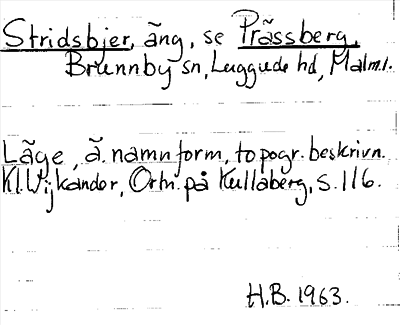 Stridsbjer, äng, se Prässberg,
Brunnby sn, Luggude hd, Malm.l.
Läge, ä. namnform, topogr. beskrivn.
Kl. Wijkander, Ortn. på Kullaberg, s. 116.
H.B. 1963.